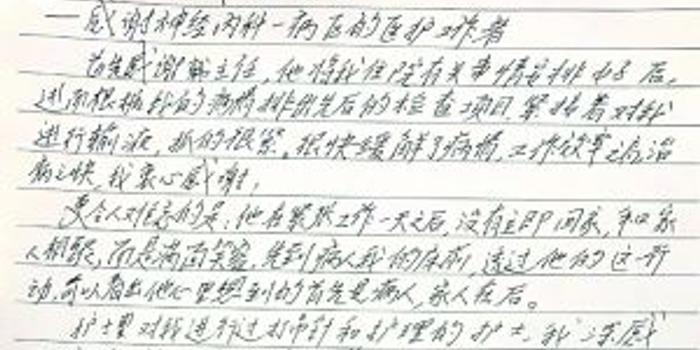 —感谢神经内科一病区的医护工作者
首先感谢戴主任，他将我住院有关事情安排好后，
进而根据我的病情排出先后的检查项目，紧接着对我
进行输液，抓的很紧，很快缓解了病情，工作效率之高，治
病之快，我衷心感谢，
更令人难忘的是，他在紧张工作一天之后，没有立即回家，和家
人相聚，而是满面笑容，先到病人我的床前，透过他的这一行
动，可以看出他心里想到的首先是病人，家人在后。
护士里对我进行过打留针和护理的护士，我深感